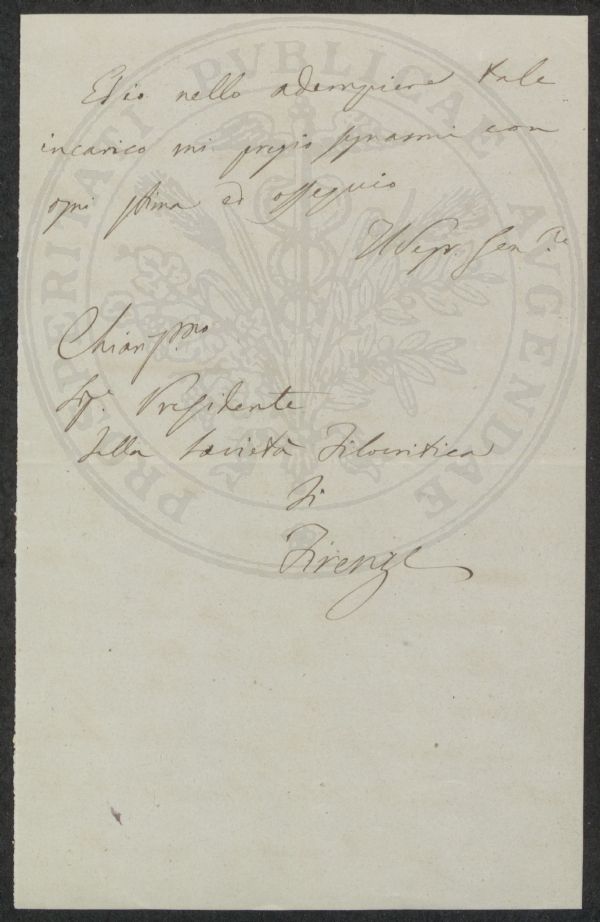 Ed io nello adempiere tale
incarico mi pregio segnarmi con
ogni stima ed ossequio
Il Segr. Gen.le
Chiariss.mo
Sig. Presidente
della Società Filocritica
di
Firenze
PROSPERITATI PVBLICAE AVGENDAE